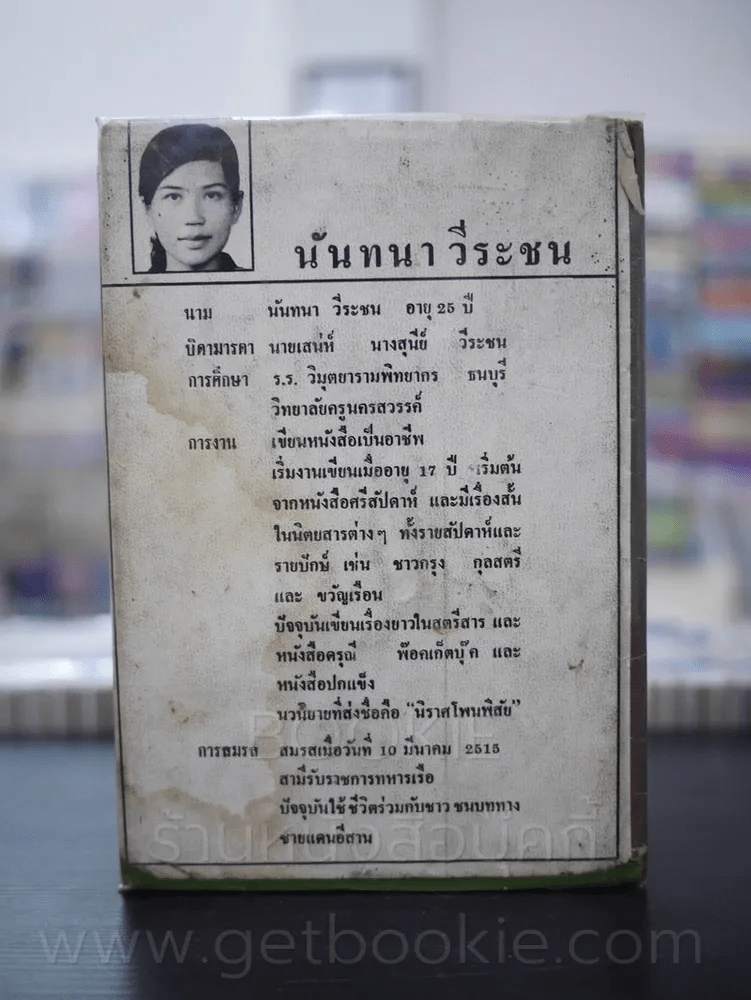 นันทนา วีระชน
นาม นันทนา วีระชน อายุ 25 ปี
บิดามารดา นายเสน่ห์ นางสุนีย์ วีระชน
การศึกษา ร.ร. วิมุตยารามพิทยากร ธนบุรี
วิทยาลัยครูนครสวรรค์
การงาน เขียนหนังสือเป็นอาชีพ
เริ่มงานเขียนเมื่ออายุ 17 ปี เริ่มต้น
จากหนังสือศรีสัปดาห์ และมีเรื่องสั้น
ในนิตยสารต่างๆ ทั้งรายสัปดาห์และ
รายปักษ์ เช่น ชาวกรุง กุลสตรี
และ ขวัญเรือน
ปัจจุบันเขียนเรื่องยาวในสตรีสาร และ
หนังสือดรุณี พ๊อคเก็ตบุ๊ค และ
หนังสือปกแข็ง
นวนิยายที่ส่งชื่อคือ "นิราศโพนพิสัย"
BOOKIE
การสมรส สมรสเมื่อวันที่ 10 มีนาคม 2515
สามีรับราชการทหารเรือ
ปัจจุบันใช้ชีวิตร่วมกับชาวชนบททาง
ชายแดนอีสาน
ร้านหนังสือบุ๊คกี้
www.getbookie.com